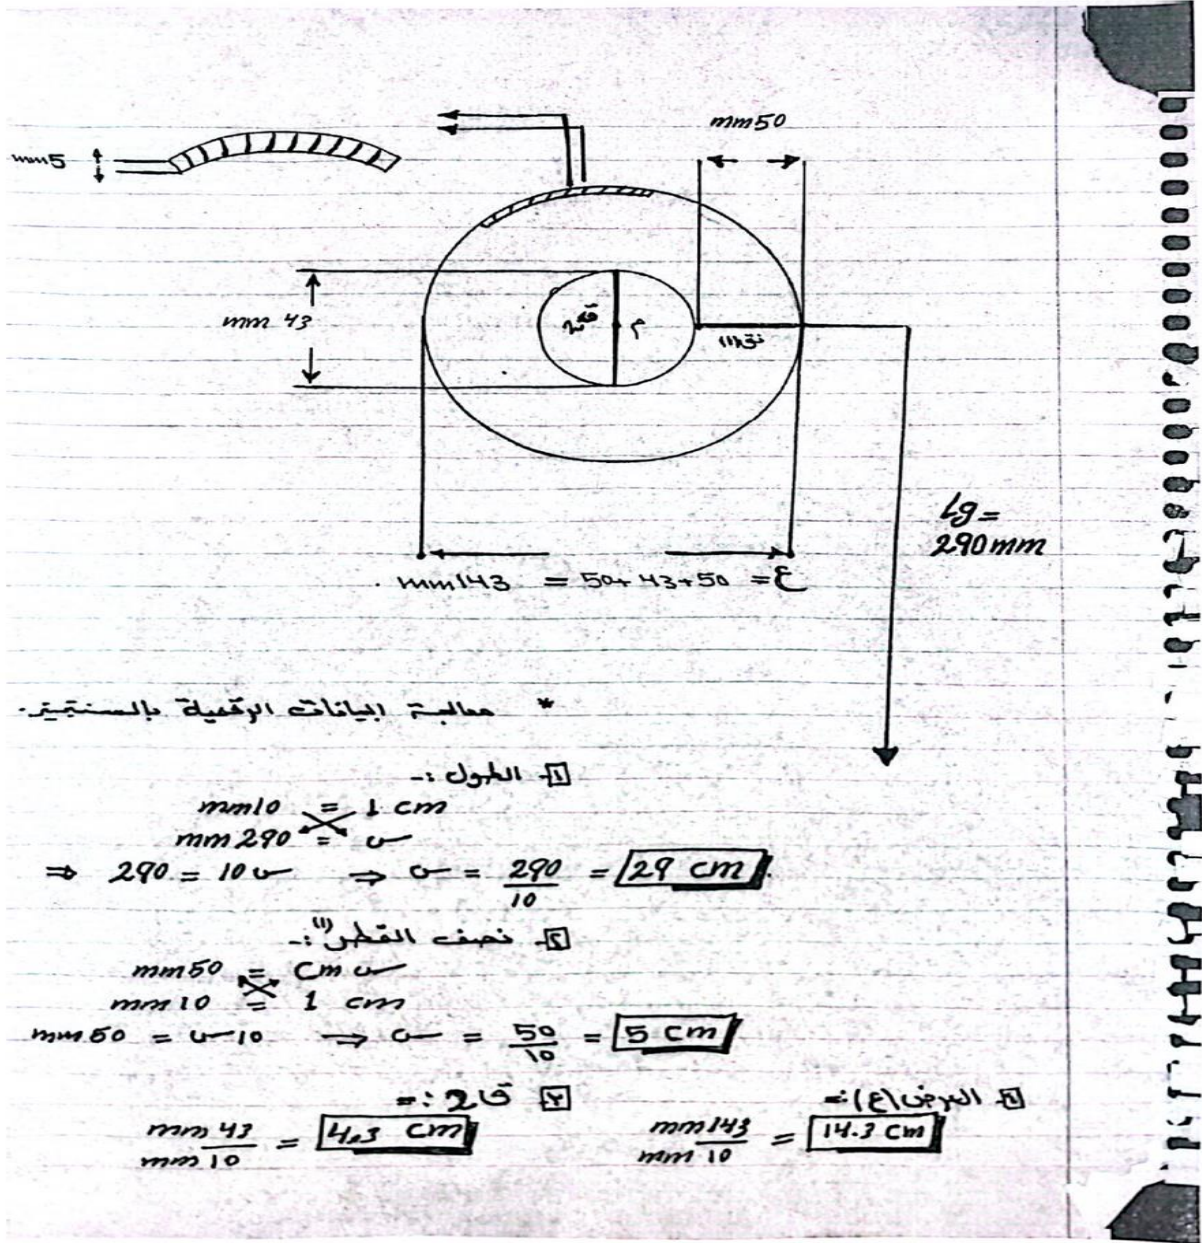 mm50
mm5
mm 43
قα2 م نق(1)
Lg=
290mm
mm143 = 50+43+50 =ع
* معالجة البيانات الرقمية بالسنتيمتر.
1- الطول :-
mm10 = 1 cm
mm290 = س
⇒ 290 = 10 س ⇒ س = 290/10 = 29 cm
2- نصف القطر(1):-
mm50 = cm س
mm10 = 1 cm
mm50 = س10 ⇒ س = 50/10 = 5 cm
العرض(ع):=
mm143/mm10 = 14.3 cm
3 ق2 :=
mm43/mm10 = 4.3 cm